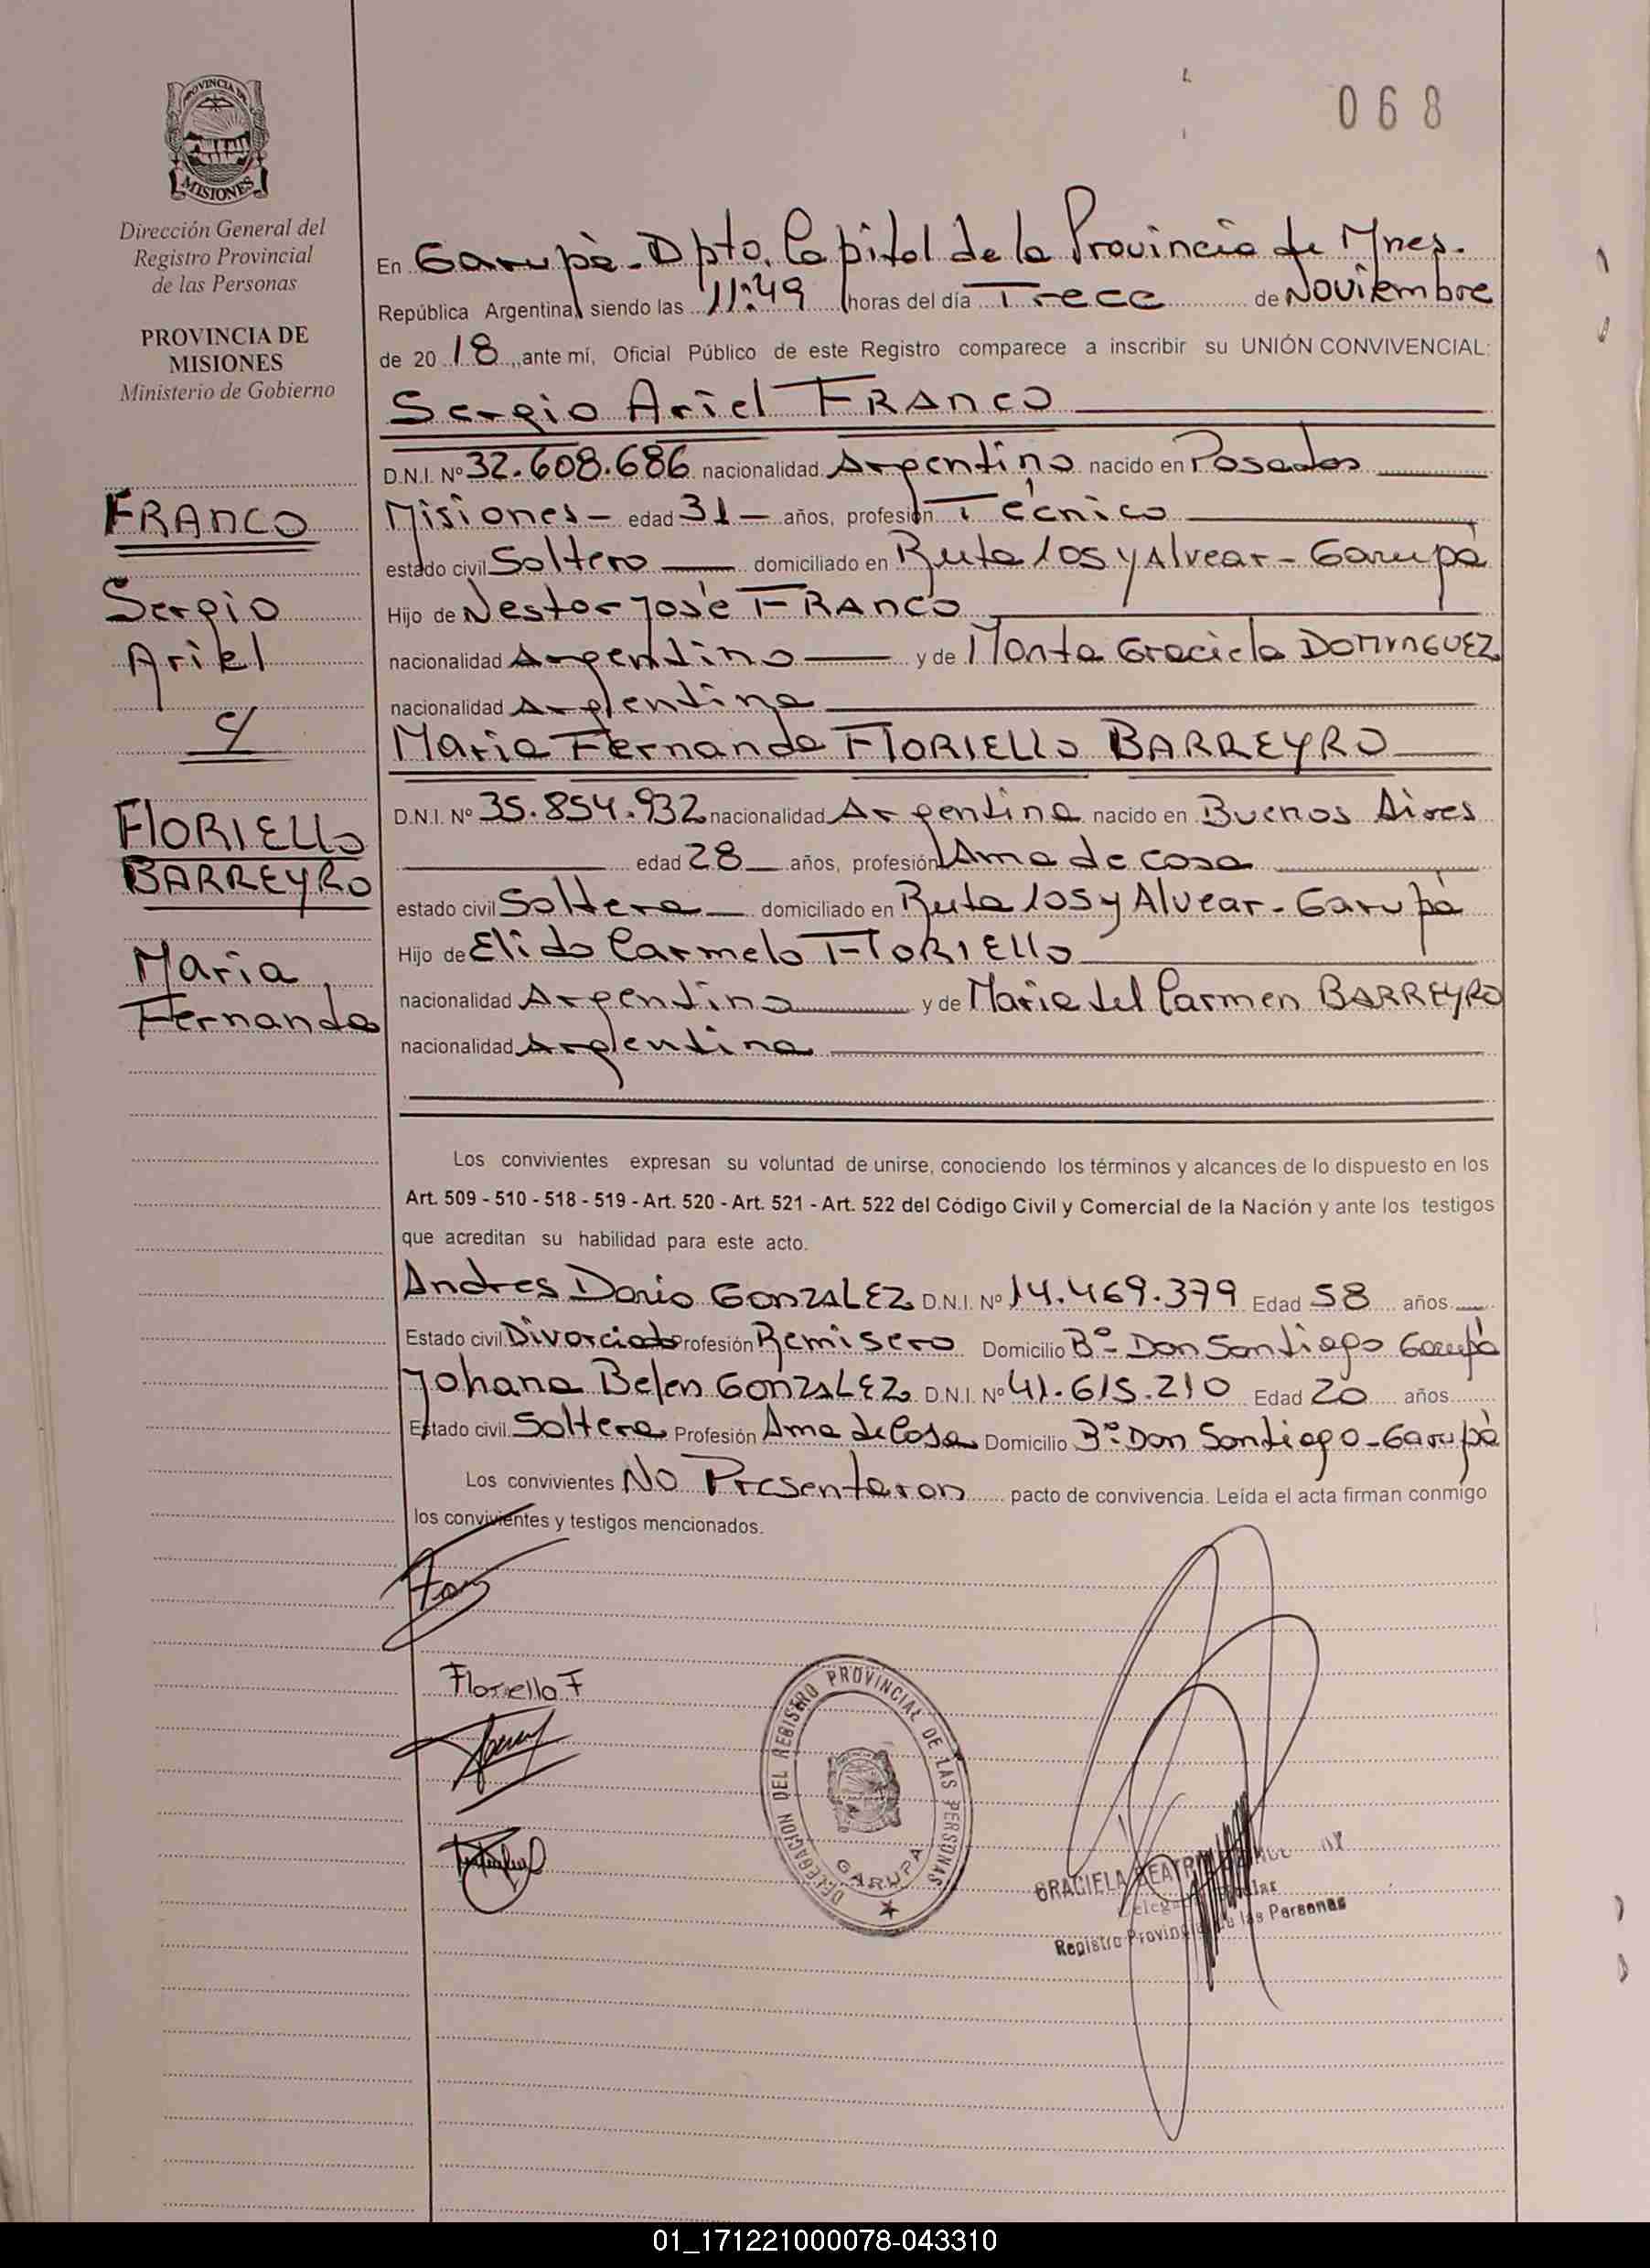 068
PROVINCIA DE
MISIONES
Dirección General del
Registro Provincial
de las Personas
PROVINCIA DE
MISIONES
Ministerio de Gobierno
FRANCO
Sergio
Ariel
c/
FLORIELLO
BARREYRO
Maria
Fernanda
En Garupà - Dpto. Capital de la Provincia de Mnes.
República Argentina, siendo las 11:49 horas del día Trece de Noviembre
de 2018, ante mí, Oficial Público de este Registro comparece a inscribir su UNIÓN CONVIVENCIAL:
Sergio Ariel FRANCO
D.N.I. Nº 32.608.686 nacionalidad Argentino nacido en Posadas
Misiones - edad 31 - años, profesión Tecnico
estado civil Soltero domiciliado en Ruta 105 y Alvear - Garupà
Hijo de Nestor Josè FRANCO
nacionalidad Argentino y de Marta Graciela DOMINGUEZ
nacionalidad Argentina
Maria Fernanda FLORIELLO BARREYRO
D.N.I. Nº 35.854.932 nacionalidad Argentina nacido en Buenos Aires
edad 28 años, profesión Ama de casa
estado civil Soltera domiciliado en Ruta 105 y Alvear - Garupà
Hijo de Elido Carmelo FLORIELLO
nacionalidad Argentino y de Maria del Carmen BARREYRO
nacionalidad Argentina
Los convivientes expresan su voluntad de unirse, conociendo los términos y alcances de lo dispuesto en los
Art. 509 - 510 - 518 - 519 - Art. 520 - Art. 521 - Art. 522 del Código Civil y Comercial de la Nación y ante los testigos
que acreditan su habilidad para este acto.
Andres Dario GONZALEZ D.N.I. Nº 14.469.379 Edad 58 años
Estado civil Divorciado Profesión Remisero Domicilio Bº- Don Santiago Garupà
Johana Belen GONZALEZ D.N.I. Nº 41.615.210 Edad 20 años
Estado civil Soltera Profesión Ama de Casa Domicilio Bº- Don Santiago - Garupà
Los convivientes No Presentaron pacto de convivencia. Leída el acta firman conmigo
los convivientes y testigos mencionados.
Floriello F
DELEGACION DEL REGISTRO PROVINCIAL DE LAS PERSONAS
GARUPA
GRACIELA
Registro Provincial de las Personas
01_171221000078-043310